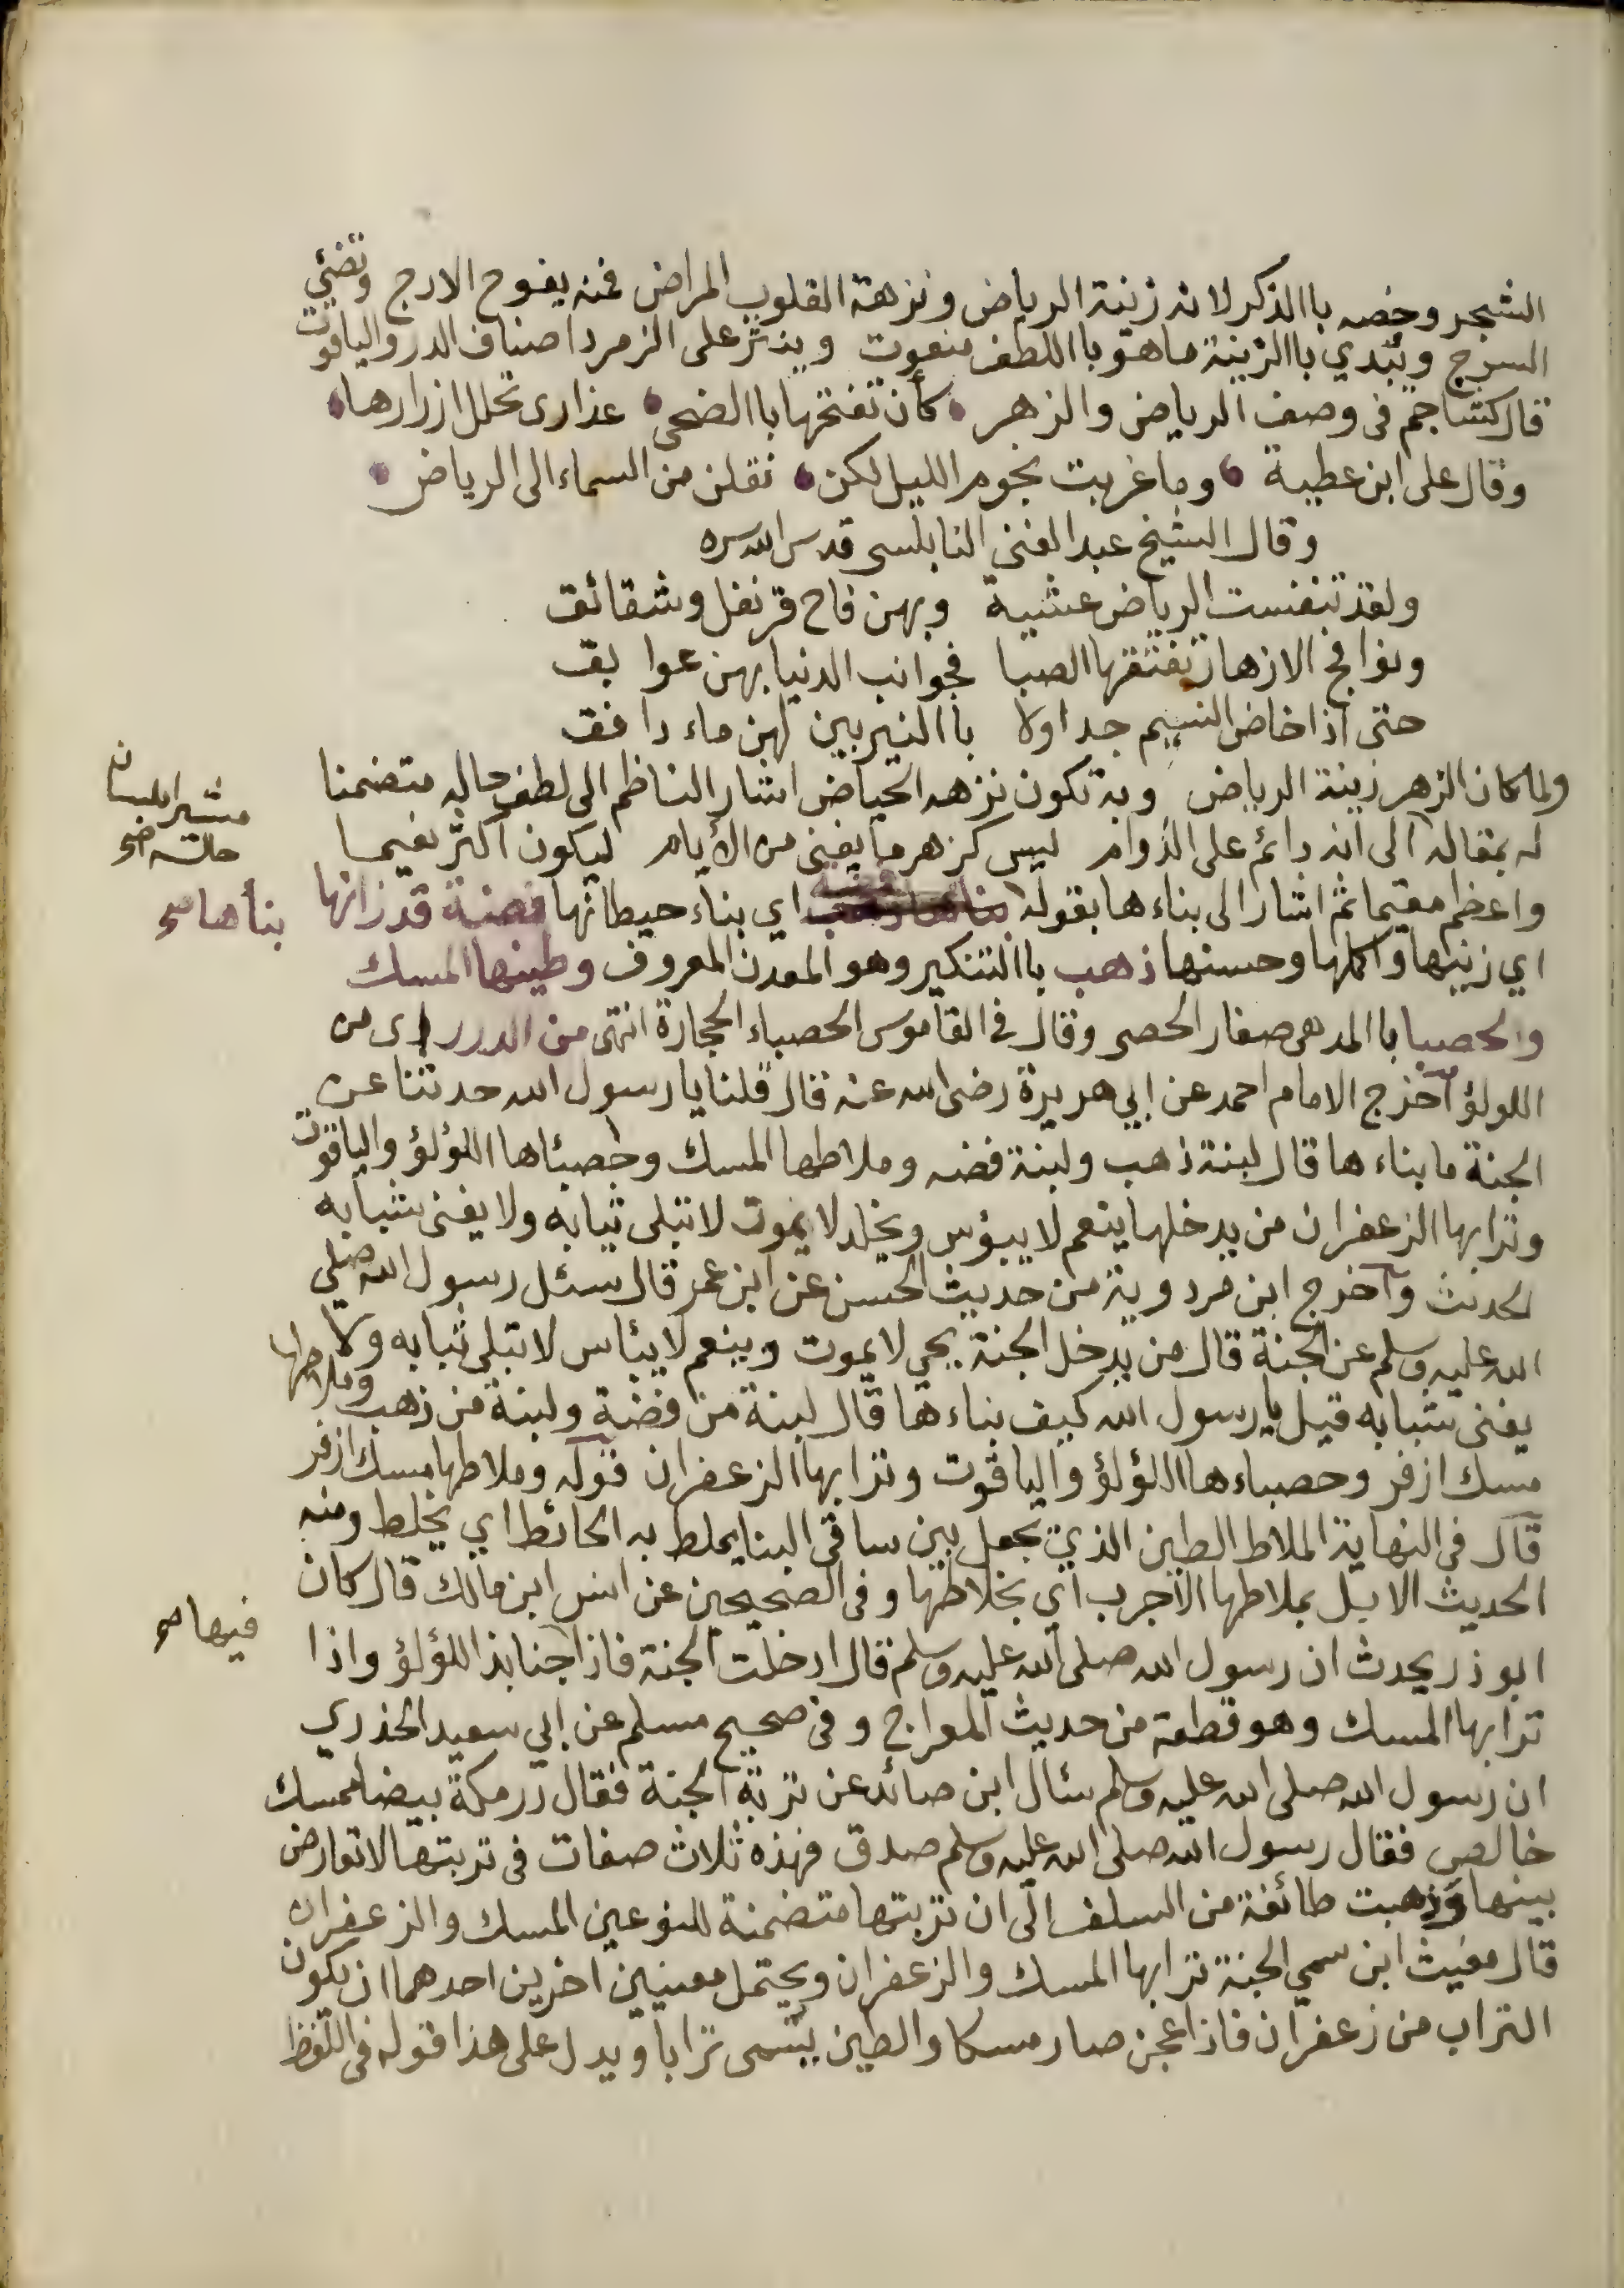 الشجر وخصه باالذكر لانه زينة الرياض ونزهة القلوب المراض فمنه يفوح الارج وتضئ
السرج ويبدي باالزينة ما هو باالطف منعوت وينثر على الزمرد اصناف الدر والياقوت
قال كشاجم في وصف الرياض والزهر كأن تفتحها باالضحى عذارى تحلل ازرارها
وقال على ابن عطية وما غربت نجوم الليل لكن نقلن من السماء الى الرياض
وقال الشيخ عبد الغنى النابلسى قدس الله سره
ولقد تنفست الرياض عشية وبهن فاح قرنفل وشقائق
ونوافح الازهار تفتقها الصبا فجوانب الدنيا بهن عوا بق
حتى اذا خاض النسيم جداولا باالنيربين لهن ماء دافق
ولما كان الزهر زينة الرياض وبه تكون نزهه الحياض اشار الناظم الى لطف حاله متضمنا
له بمقاله الى انه دائم على الدوام ليس كزهر ما يفنى من الأيام ليكون اكثر نعيما
واعظم مقيما ثم اشار الى بناء ها بقوله اي بناء حيطانها فضة قد زانها
بناها صح
اي زينها واكملها وحسنها ذهب باالتنكير وهو المعدن المعروف وطينها المسك
والحصبا باالمد هى صغار الحصى وقال في القاموس الحصباء الحجارة انتهى من الدرر اى من
اللولؤ اخرج الامام احمد عن ابي هريرة رضى الله عنه قال قلنا يا رسول الله حدثنا عن
الجنة ما بناء ها قال لبنة ذهب ولبنة فضه وملاطها المسك وحصبئاها اللؤلؤ والياقوت
وترابها الزعفران من يدخلها ينعم لا يبؤس ويخلد لا يموت لا تبلى ثيابه ولا يفنى شبابه
الحديث وآخرج ابن مردوية من حديث الحسن عن ابن عمر قال سئل رسول الله صلى
الله عليه وسلم عن الجنة قال من يدخل الجنة يحي لا يموت وينعم لا يبئاس لا تبلى ثيابه ولا
يفنى شبابه قيل يا رسول الله كيف بناء ها قال لبنة من فضة ولبنة من ذهب وملاطها
مسك ازفر وحصباء ها اللؤلؤ والياقوت وترابها الزعفران قوله وملاطها مسك ازفر
قال في النهاية الملاط الطين الذي يجعل بين ساقى البنا يملط به الحائط اي يخلط ومنه
الحديث الابل يملاطها الاجرب اي يخلاطها وفي الصحيحين عن انس ابن مالك قال كان
ابو ذر يحدث ان رسول الله صلى الله عليه وسلم قال ادخلت الجنة فاذا جنابذ اللؤلؤ واذا
فيها صح
ترابها المسك وهو قطعة من حديث المعراج وفي صحيح مسلم عن ابي سعيد الخذري
ان رسول الله صلى الله عليه وسلم سئال ابن صائد عن تربة الجنة فقال درمكة بيضا مسك
خالص فقال رسول الله صلى الله عليه وسلم صدق فهذه ثلاث صفات في تربتها لا تعارض
بينها وذهبت طائفة من السلف الى ان تربتها متضمنة للنوعين المسك والزعفران
قال مغيث ابن سمي الجنة ترابها المسك والزعفران ويحتمل معنيين اخرين احدهما ان يكون
التراب من زعفران فاذا عجن صار مسكا والطين يسمى ترابا ويدل على هذا قوله في اللفظ